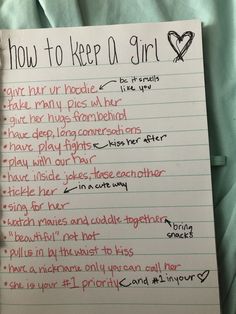 how to keep a girl
• give her ur hoodie ← bc it smells like you
• take many pics w/ her
• give her hugs from behind
• have deep, long conversations
• have play fights ← kiss her after
• play with our hair
• have inside jokes, tease each other
• tickle her ← in a cute way
• sing for her
• watch movies and cuddle together ← bring snacks
• "beautiful" not hot
• pull us in by the waist to kiss
• have a nickname only you can call her
• she is your #1 priority ← and #1 in your ♡